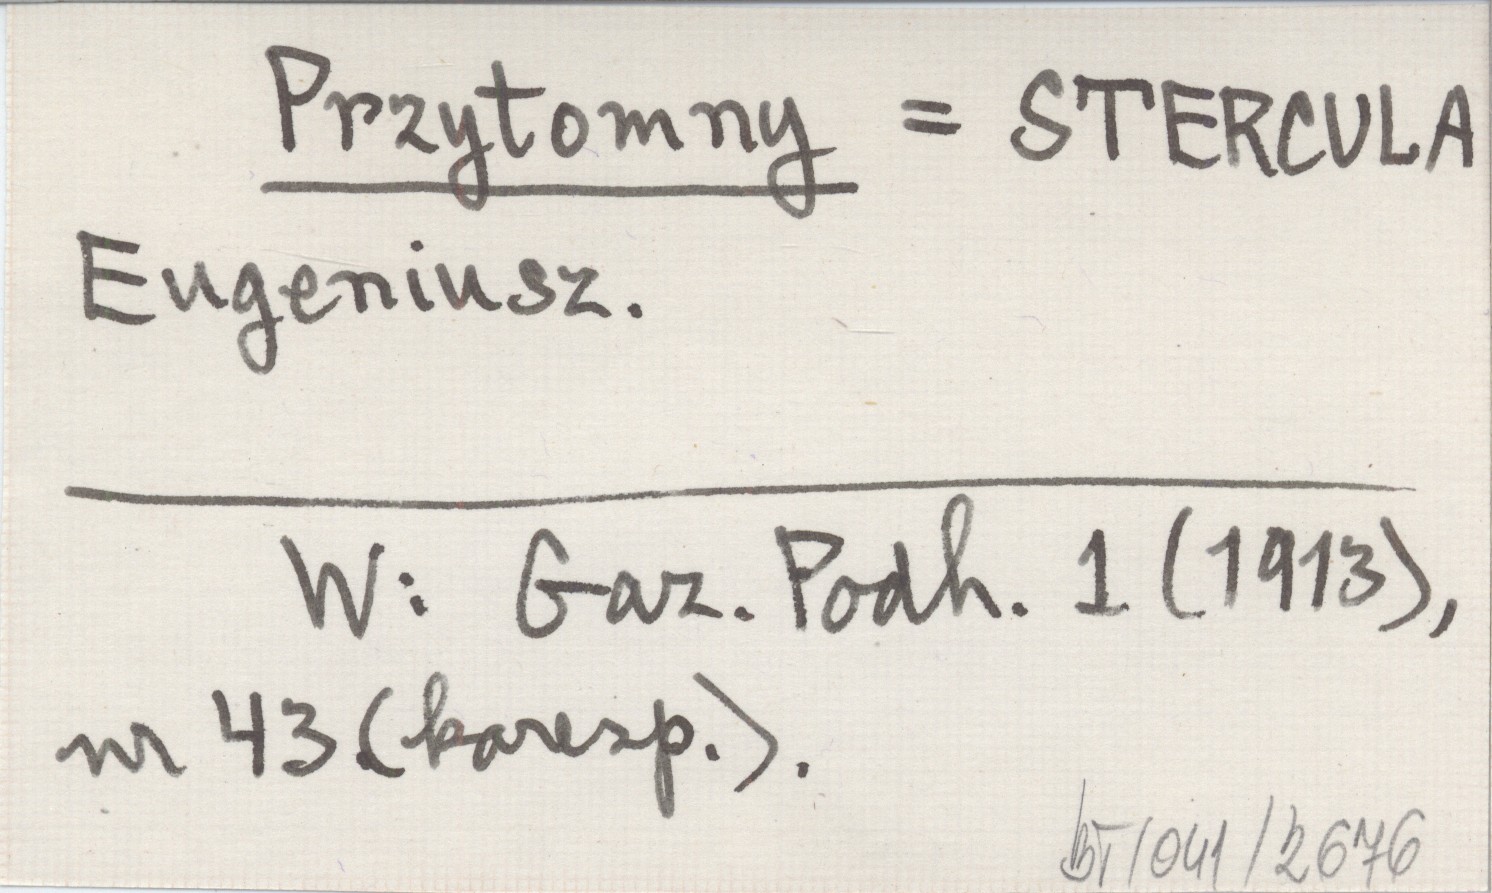 Przytomny = STERCULA
Eugeniusz.
W: Gaz. Podh. 1 (1913),
nr 43 (koresp.).
BT/041/2676